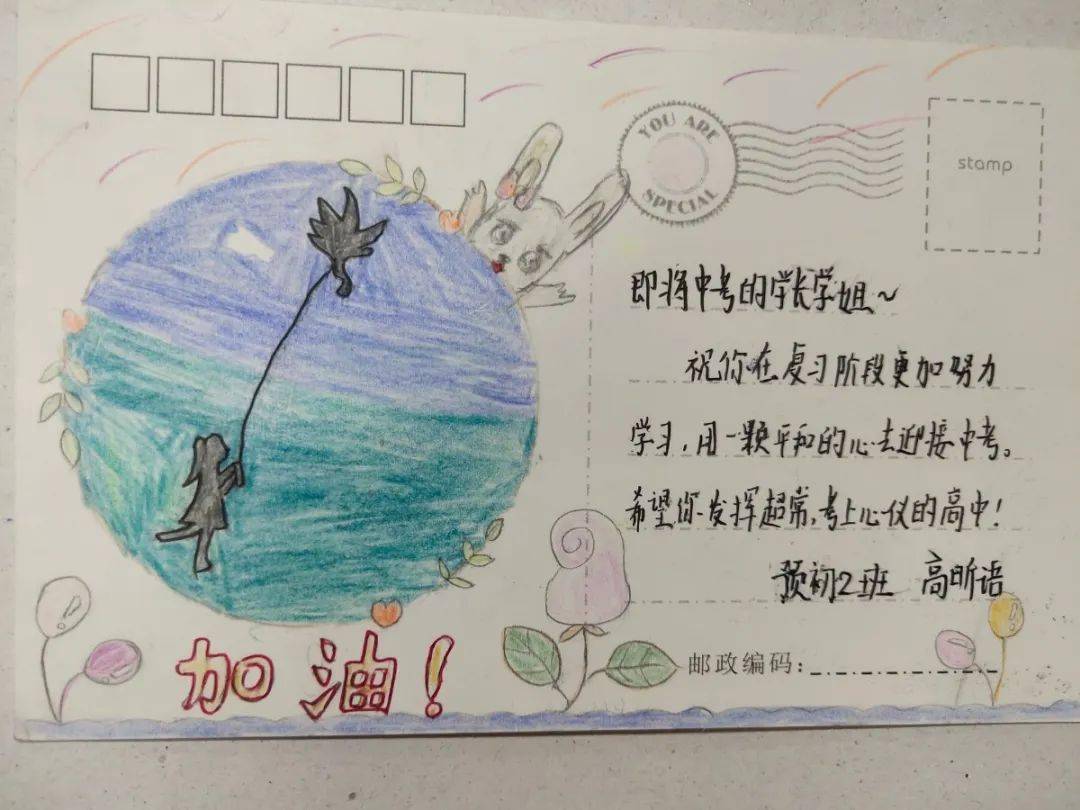 YOU ARE
SPECIAL
stamp
即将中考的学长学姐~
祝你在复习阶段更加努力
学习,用一颗平和的心去迎接中考。
希望你发挥超常,考上心仪的高中!
预初2班 高昕语
邮政编码:
加油!